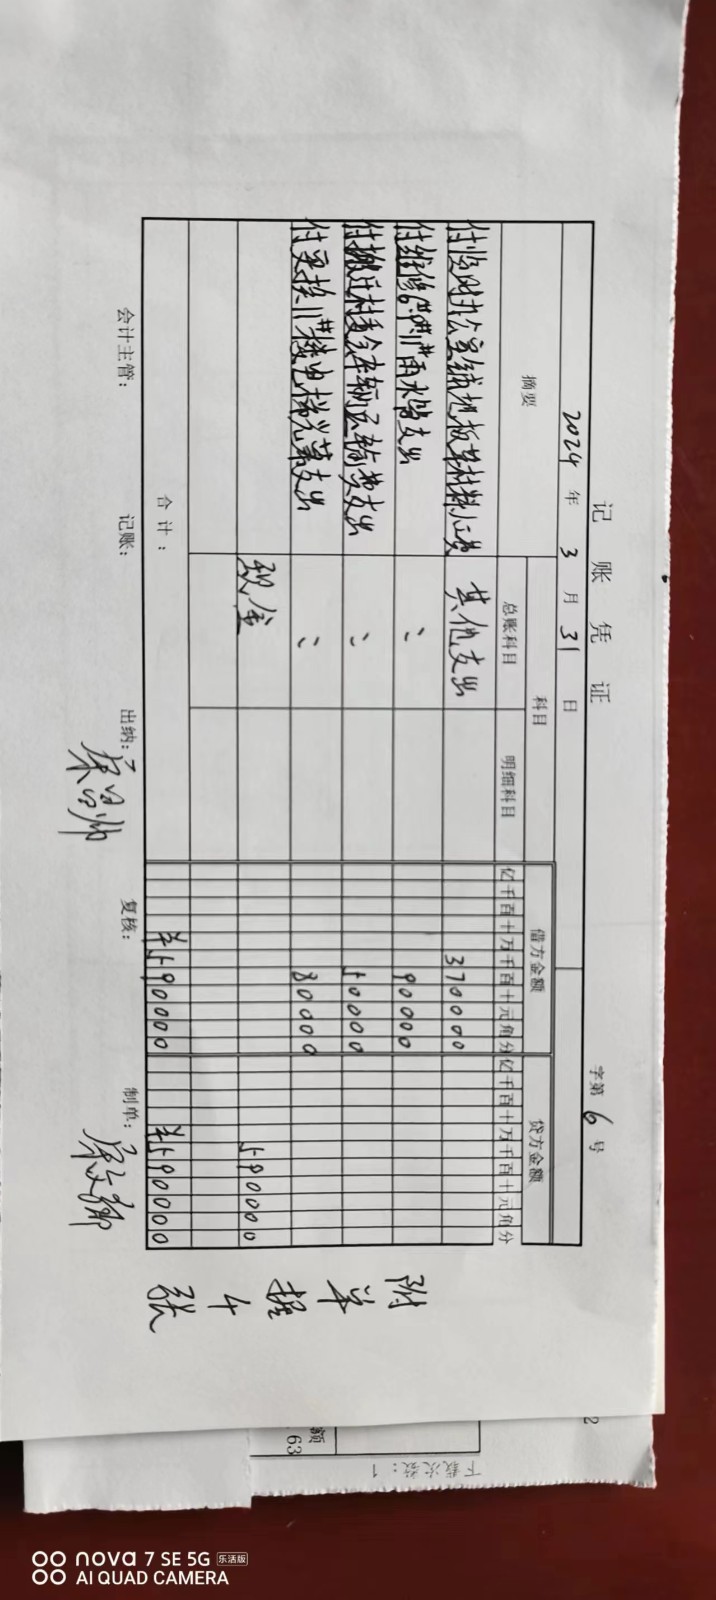 记账凭证
2024 年 3 月 31 日
字第 6 号
摘要 科目 借方金额 贷方金额
总账科目 明细科目 亿千百十万千百十元角分 亿千百十万千百十元角分
付临时办公室铺地板革材料工费 其他支出 370000
付维修 雨水管支出 〃 90000
付搬迁村委会车辆运输费支出 〃 50000
付更换11#楼电梯光幕支出 〃 80000
现金 590000
合计: ¥590000 ¥590000
会计主管: 记账: 出纳: 复核: 制单:
附单据4张
额
63
下载次数:1
2
nova 7 SE 5G 乐活版
AI QUAD CAMERA